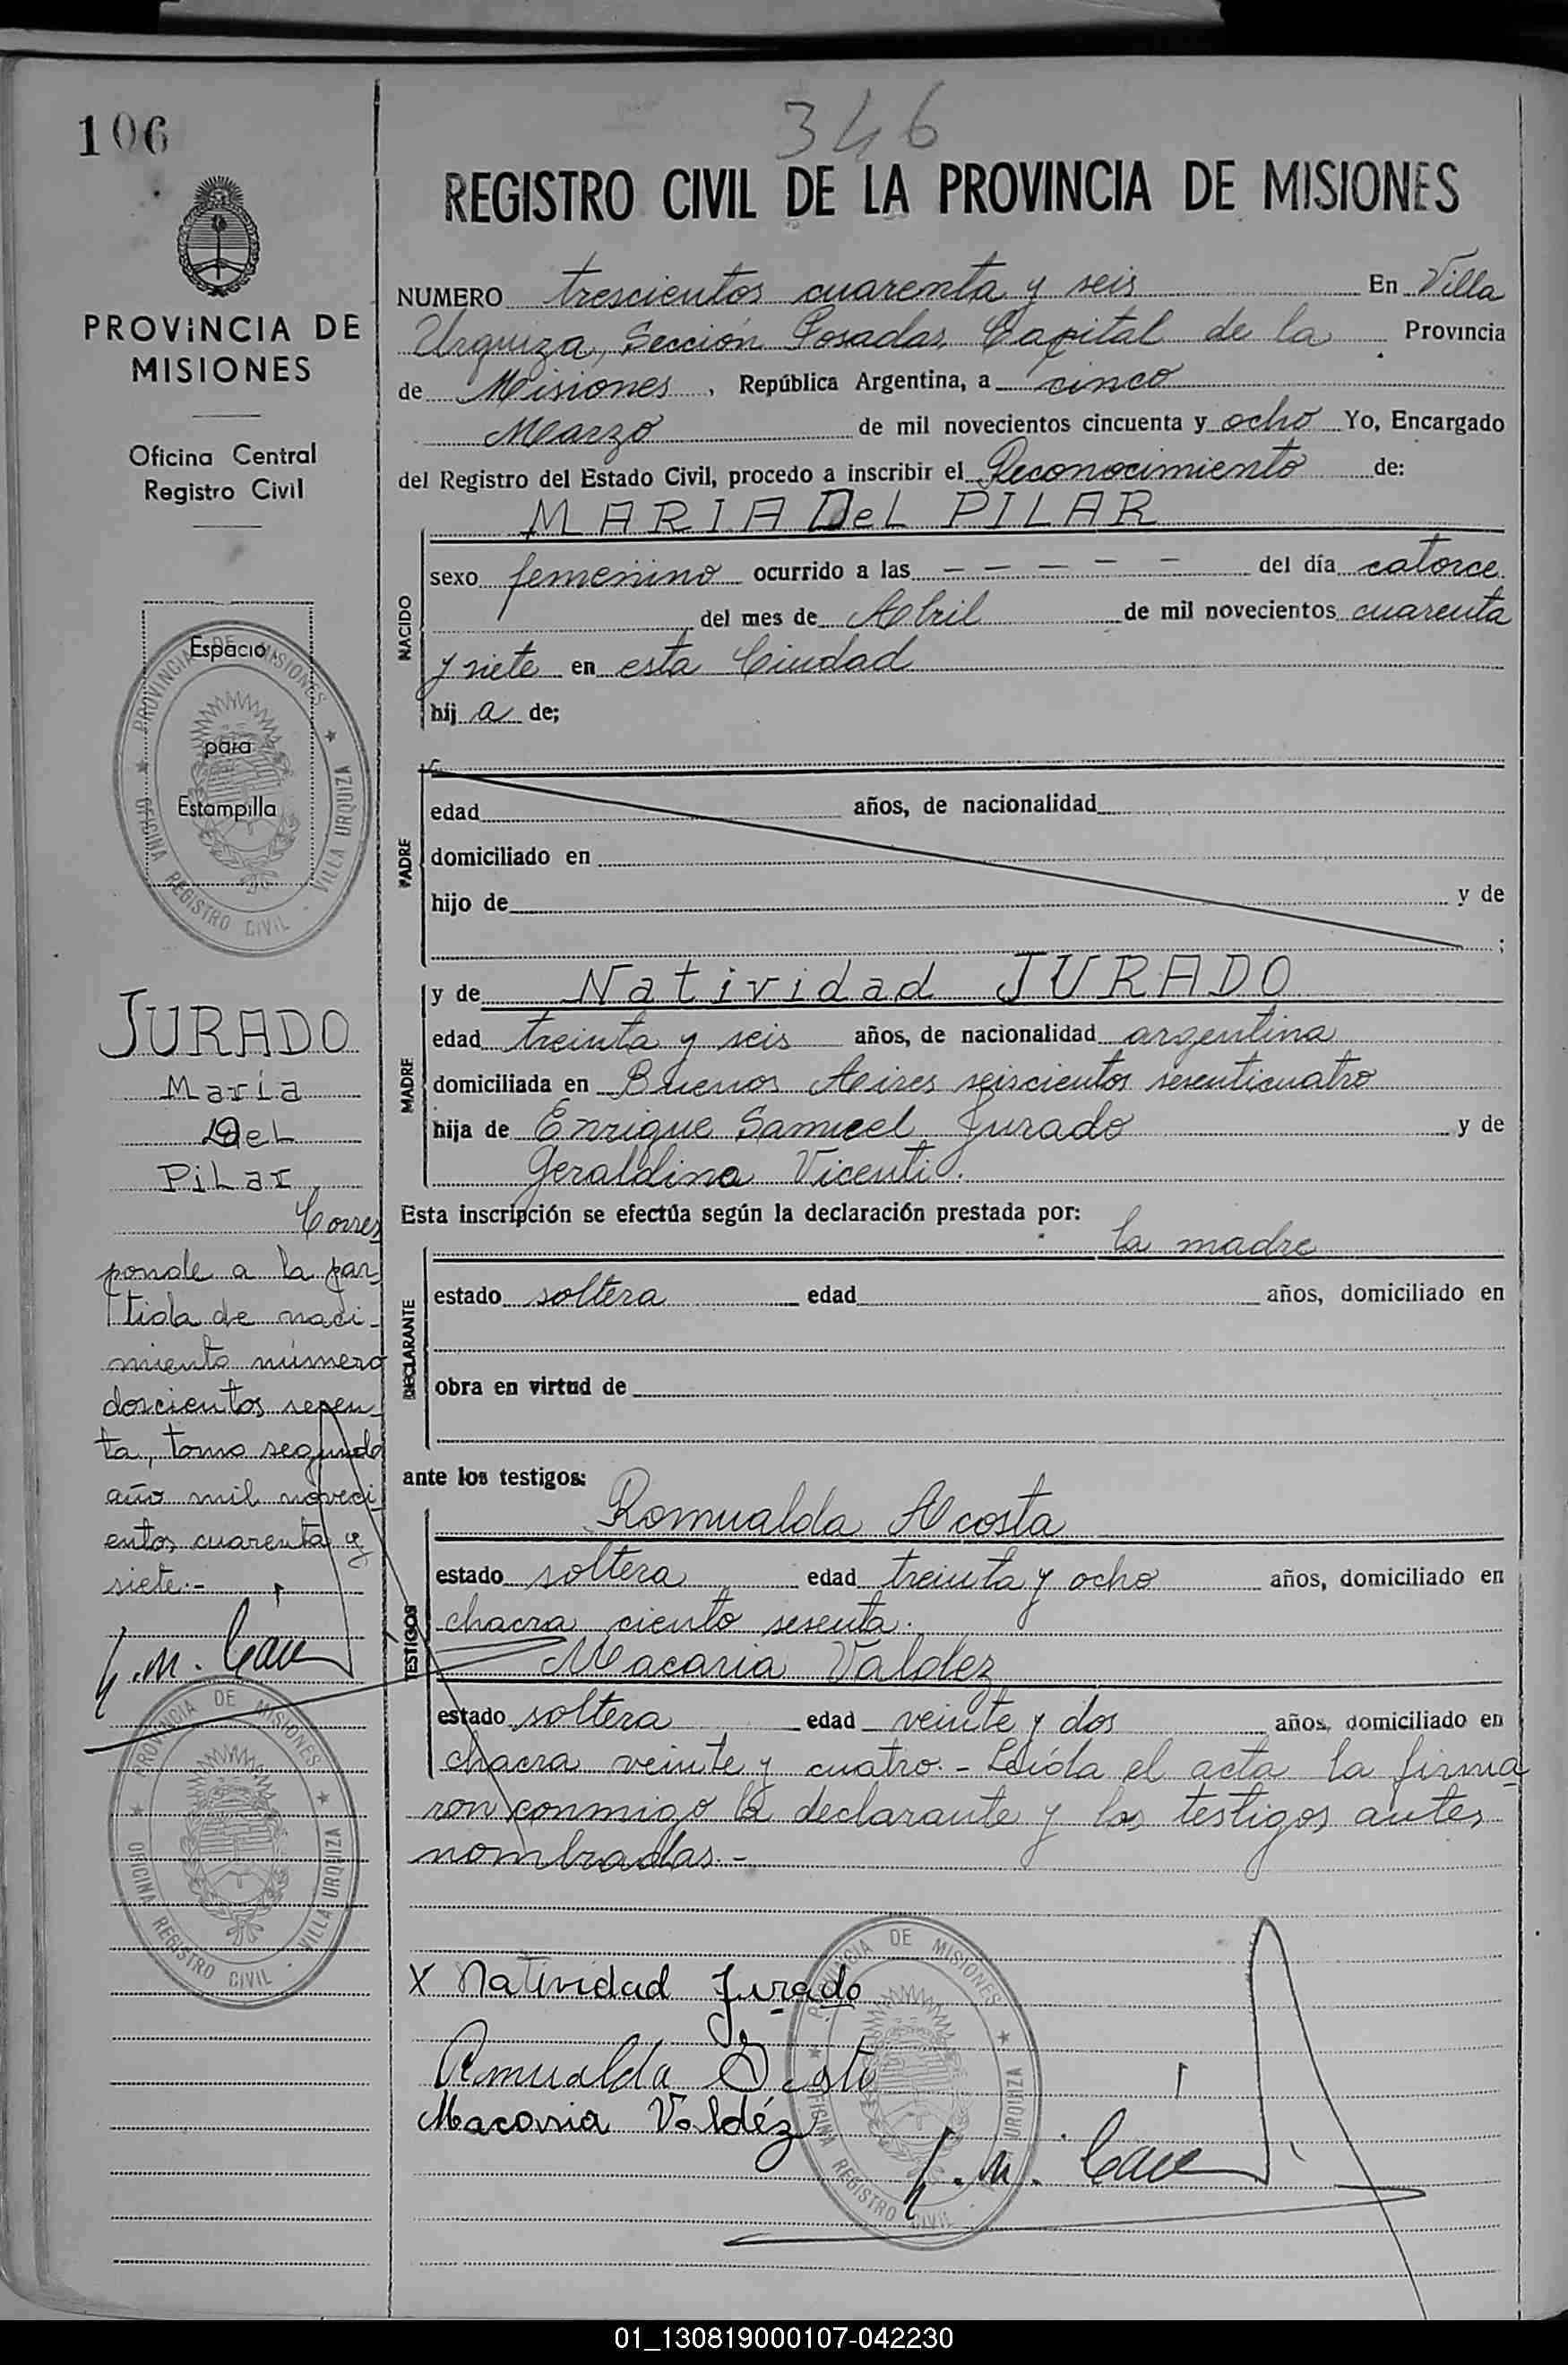 106
PROVINCIA DE
MISIONES
Oficina Central
Registro Civil
Espacio
para
Estampilla
PROVINCIA DE MISIONES
OFICINA REGISTRO CIVIL - VILLA URQUIZA
JURADO
María
Del
Pilar
Corres
ponde a la par
tida de naci-
miento número
doscientos
ta, tomo segundo
año mil noveci
entos cuarenta y
siete.-
PROVINCIA DE MISIONES
OFICINA REGISTRO CIVIL - VILLA URQUIZA
346
REGISTRO CIVIL DE LA PROVINCIA DE MISIONES
NUMERO trescientos cuarenta y seis En Villa
Urquiza, Sección Posadas, Capital de la Provincia
de Misiones, República Argentina, a cinco
Marzo de mil novecientos cincuenta y ocho Yo, Encargado
del Registro del Estado Civil, procedo a inscribir el Reconocimiento de:
MARIA DeL PILAR
NACIDO
sexo femenino ocurrido a las – – – – – del día catorce
del mes de Abril de mil novecientos cuarenta
y siete en esta Ciudad
hij a de;
PADRE
edad años, de nacionalidad
domiciliado en
hijo de y de
;
MADRE
y de Natividad JURADO
edad treinta y seis años, de nacionalidad argentina
domiciliada en Buenos Aires seiscientos sesenticuatro
hija de Enrique Samuel Jurado y de
Geraldina Vicenti.
Esta inscripción se efectúa según la declaración prestada por:
la madre
DECLARANTE
estado soltera edad años, domiciliado en
obra en virtud de
ante los testigos:
TESTIGOS
Romualda Acosta
estado soltera edad treinta y ocho años, domiciliado en
chacra ciento sesenta.
Macaria Valdez
estado soltera edad veinte y dos años, domiciliado en
chacra veinte y cuatro.- Leída el acta la firma
ron conmigo la declarante y los testigos antes
nombradas.-
X Natividad Jurado
Romualda Acosta
Macaria Valdéz
PROVINCIA DE MISIONES
OFICINA REGISTRO CIVIL URQUIZA
01_130819000107-042230